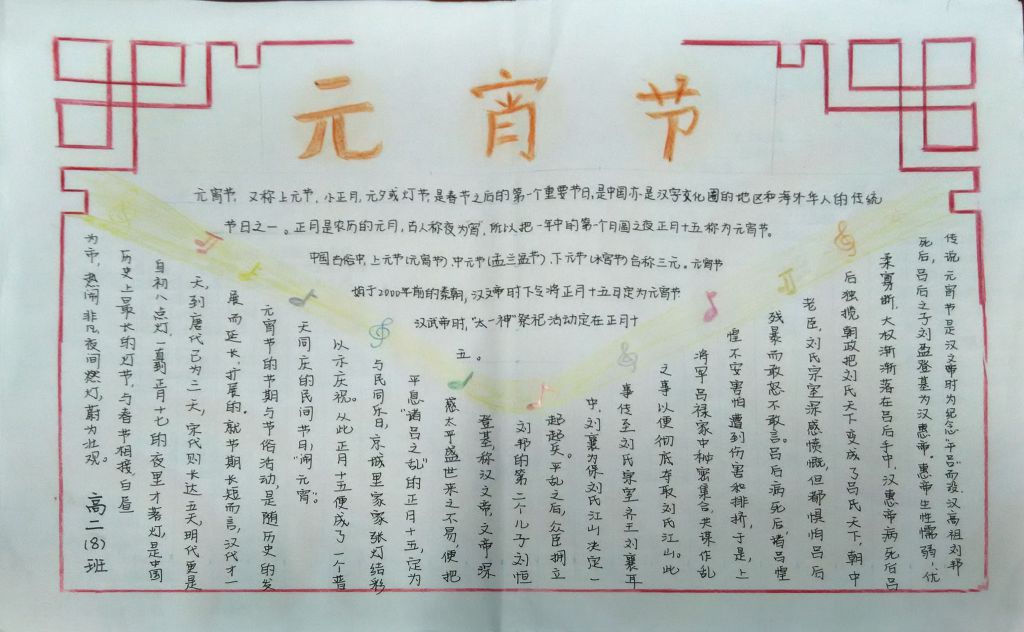 元宵节
元宵节，又称上元节，小正月，元夕或灯节，是春节之后的第一个重要节日，是中国亦是汉字文化圈的地区和海外华人的传统
节日之一。正月是农历的元月，古人称夜为宵，所以把一年中的第一个月圆之夜正月十五称为元宵节。
中国古俗中，上元节(元宵节)中元节(盂兰盆节)、下元节(水官节)合称三元。元宵节
始于2000年前的秦朝，汉文帝时下令将正月十五日定为元宵节
汉武帝时，“太一神”祭祀活动定在正月十
五。
传说元宵节是汉文帝时为纪念“平吕”而设，汉高祖刘邦
死后，吕后之子刘盈登基为汉惠帝。惠帝生性懦弱，优
柔寡断，大权渐渐落在吕后手中，汉惠帝病死后吕
后独揽朝政把刘氏天下变成了吕氏天下，朝中
老臣，刘氏宗室深感愤慨，但都惧怕吕后
残暴而敢怒不敢言。吕后病死后，诸吕惶
惶不安害怕遭到伤害和排挤，于是，上
将军吕禄家中秘密集合，共谋作乱
之事以便彻底夺取刘氏江山。此
事传至刘氏宗室齐王刘襄耳
中，刘襄为保刘氏江山决定
起兵。平乱之后，众臣拥立
刘邦的第二个儿子刘恒
登基，称汉文帝，文帝深
感太平盛世来之不易，便把
平息“诸吕之乱”的正月十五，定为
与民同乐日，京城里家家张灯结彩
以示庆祝。从此正月十五便成了一个普
天同庆的民间节日，“闹元宵”。
元宵节的节期与节俗活动，是随历史的发
展而延长，扩展的。就节期长短而言，汉代才一
天，到唐代已为三天，宋代则长达五天，明代更是
自初八点灯，一直到正月十七的夜里才落灯，是中国
历史上最长的灯节，与春节相接白昼
为市，热闹非凡夜间燃灯，蔚为壮观。
高二(8)班